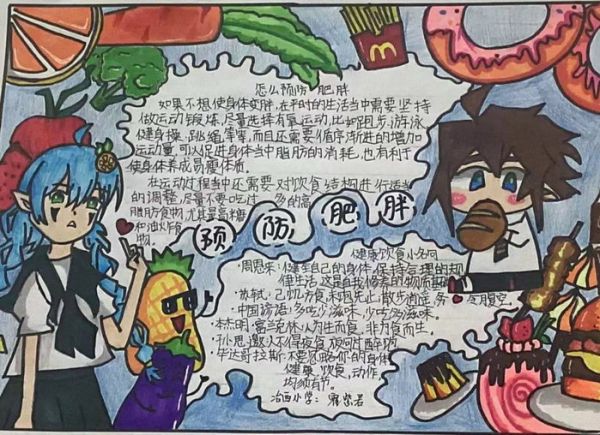 怎么预防肥胖
如果不想使身体变胖,在平时的生活当中需要坚持
做运动锻炼,尽量选择有氧运动,比如跑步、游泳
健身操、跳绳等等,而且还需要循序渐进的增加
运动量,可以促进身体当中脂肪的消耗,也有利于
使身体养成易瘦体质。
在运动过程当中还需要对饮食结构进行适当
的调整,尽量不要吃过多的高
脂肪食物,尤其是高糖
和油炸食
物。
预防肥胖
健康饮食小名句
·周恩来:健全自己的身体,保持合理的规
律生活,这是自我修养的物质基础
·苏轼:已饥方食,未饱先止,散步逍遥,务令腹空。
·中国谚语:多吃少滋味,少吃多滋味。
·本杰明·富兰克林:人为生而食,非为食而生。
·孙思邈:人不得夜食,夜勿过醉饱
·毕达哥拉斯:不要忽略你的身体
健康,饮食,动作,
均须有节。
冶西小学: